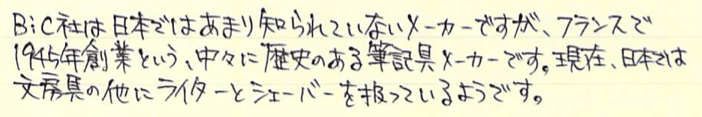 BiC社は日本ではあまり知られていないメーカーですが、フランスで
1945年創業という、中々に歴史のある筆記具メーカーです。現在、日本では
文房具の他にライターとシェーバーを扱っているようです。